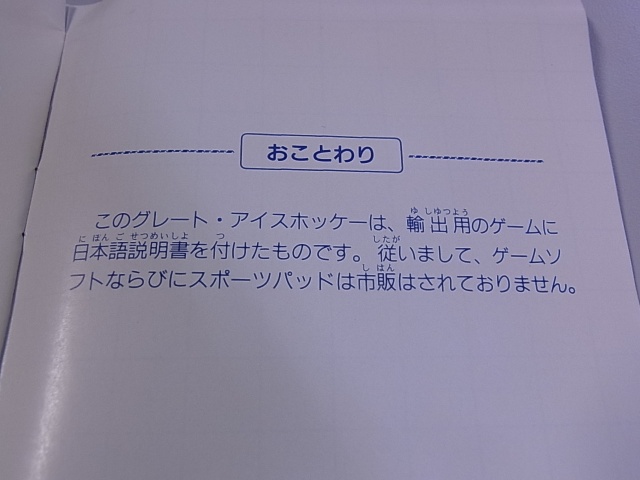 おことわり
このグレート・アイスホッケーは、輸出用のゲームに
日本語説明書を付けたものです。従いまして、ゲームソ
フトならびにスポーツパッドは市販はされておりません。